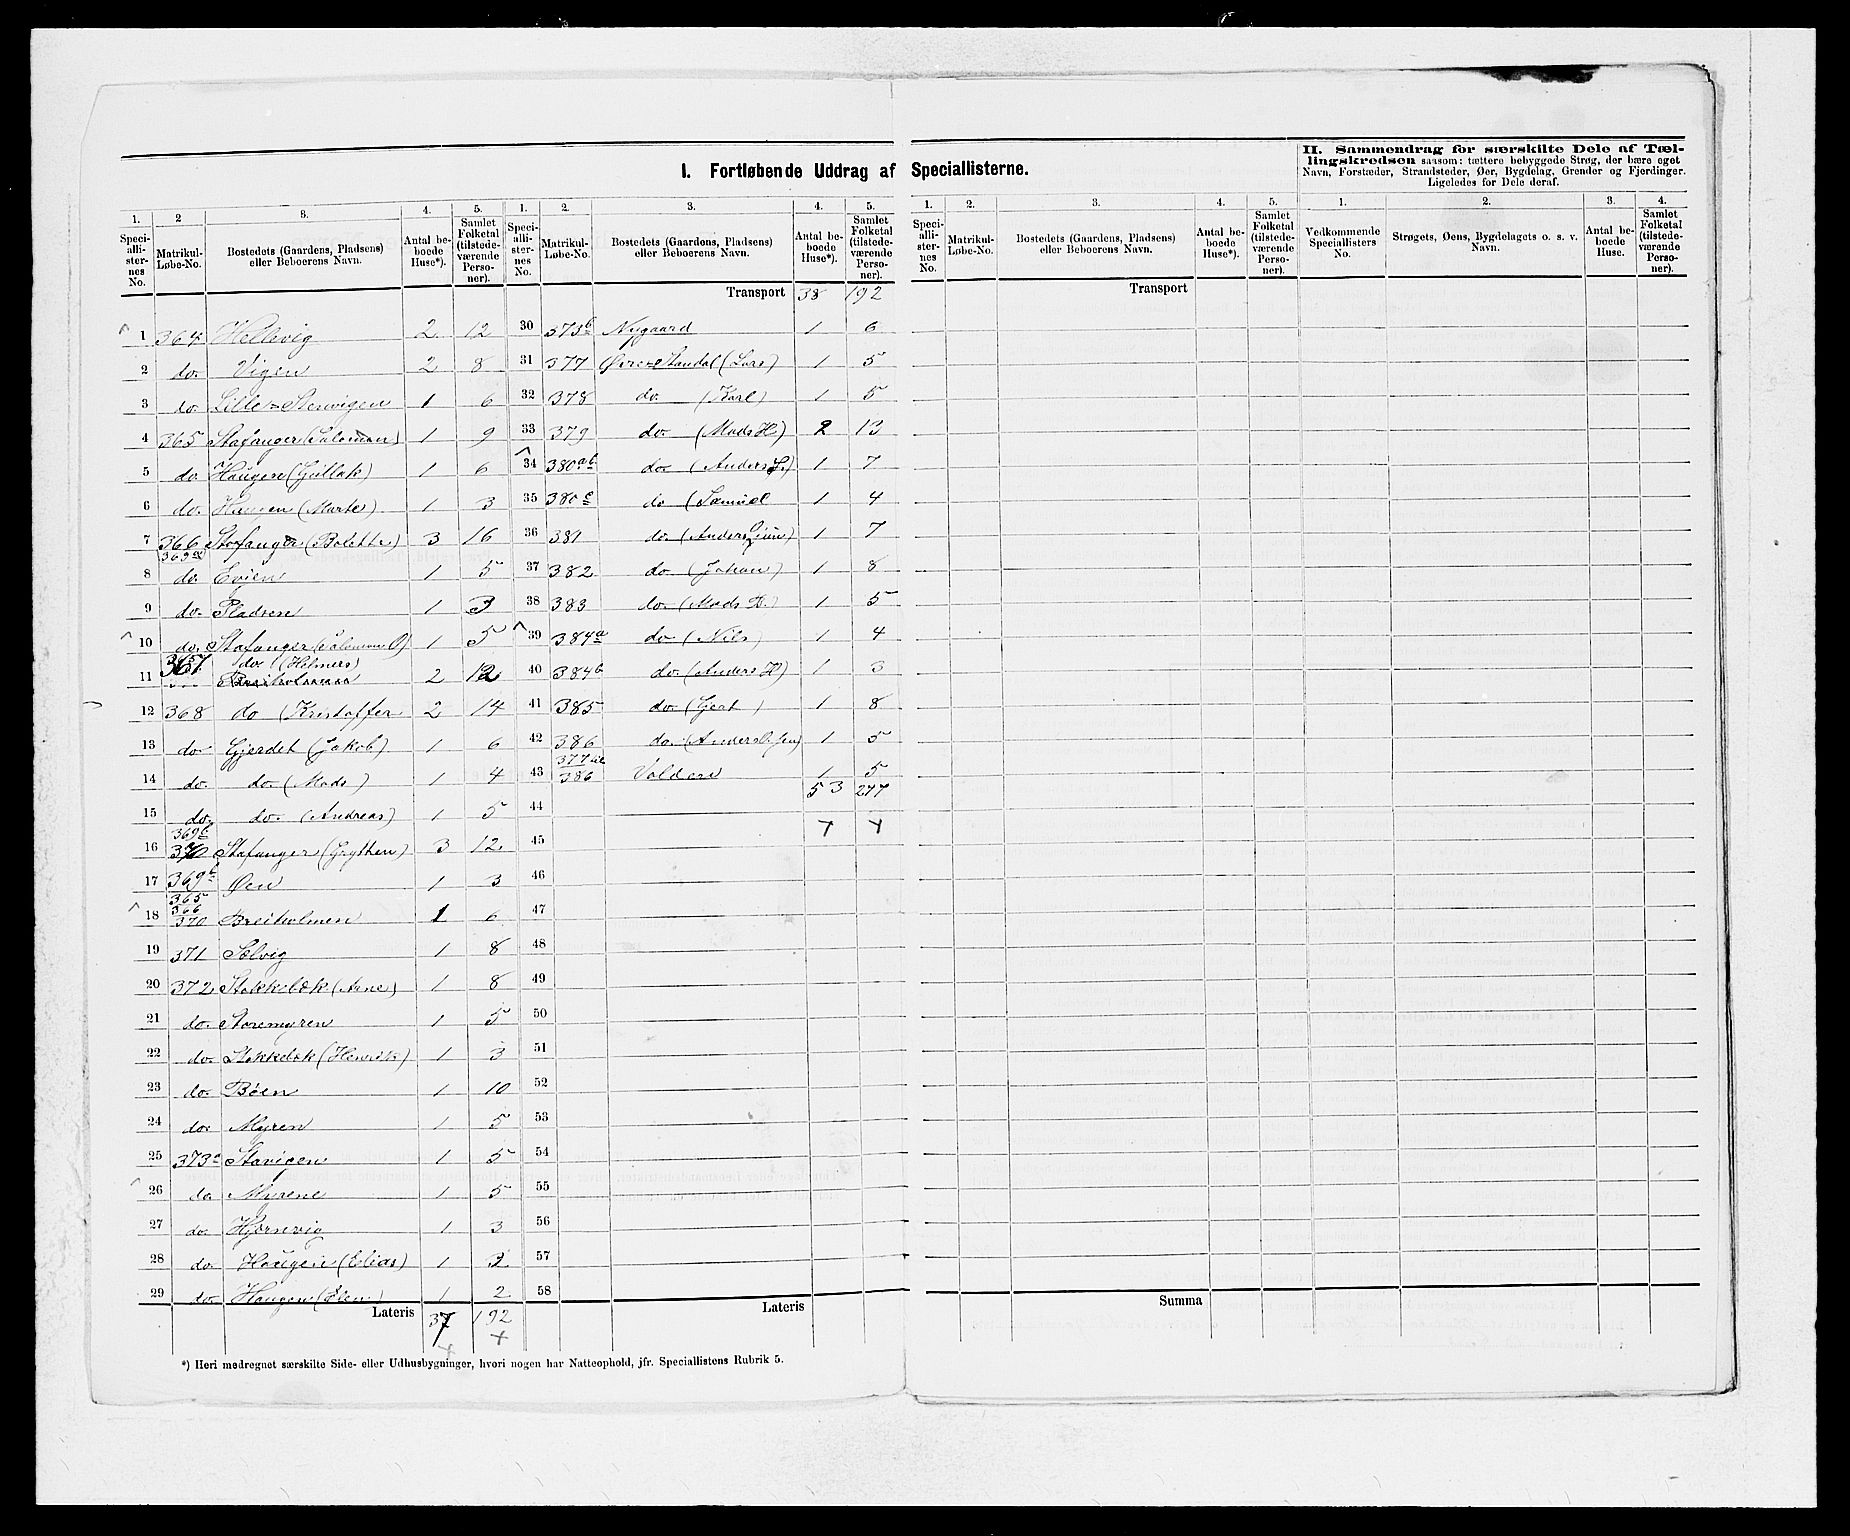 I. Fortløbende Uddrag af Speciallisterne.
II. Sammendrag for særskilte Dele af Tællingskredsen saasom: tættere bebyggede Strøg, der bære eget
Navn, Forstæder, Strandsteder, Øer, Bygdelag, Grender og Fjerdinger.
Ligeledes for Dele deraf.
1. 2 3. 4. 5. 1. 2. 3. 4. 5. 1. 2. 3. 4. 5. 1. 2. 3. 4.
Speciallisternes No. Matrikul-Løbe-No. Bostedets (Gaardens, Pladsens) eller Beboerens Navn. Antal beboede Huse*). Samlet Folketal (tilstedeværende Personer).
Speciallisternes No. Matrikul-Løbe-No. Bostedets (Gaardens, Pladsens) eller Beboerens Navn. Antal beboede Huse*). Samlet Folketal (tilstedeværende Personer).
Speciallisternes No. Matrikul-Løbe-No. Bostedets (Gaardens, Pladsens) eller Beboerens Navn. Antal beboede Huse*). Samlet Folketal (tilstedeværende Personer).
Vedkommende Speciallisters No. Strøgets, Øens, Bygdelagets o. s. v. Navn. Antal beboede Huse. Samlet Folketal (tilstedeværende Personer).
1 364 Hellevig 2 12
2 do. Vigen 2 8
3 do. Lille-Stenvigen 1 6
4 365 Stafanger (Salomon) 1 9
5 do Haugere (Gullak) 1 6
6 do. Haugen (Marte) 1 3
7 366 Stafanger (Bolette) 3 16
8 369 do. Evjen 1 5
9 do. Pladsen 1 3
10 do. Stafanger (Salomon O) 1 5
11 367 do. (Helmers) 2 12
12 368 do (Kristoffer 2 14
13 do Gjerdet (Jakob) 1 6
14 do. do. (Mads) 1 4
15 do. do. (Andreas) 1 5
16 369c 370 Stafanger (Grytten) 3 12
17 369b Øen 1 3
18 365 366 370 Breiholmen 1 6
19 371 Sælvig 1 8
20 372 Stokkebæk (Arne) 1 8
21 do. Storemyren 1 5
22 do. Stokkebæk (Henrik) 1 3
23 do. Bøen 1 10
24 do. Myren 1 5
25 373a Stavigen 1 5
26 do Myrene 1 5
27 do. Hjørnevig 1 3
28 do. Haugen (Elias) 1 3
29 do. Haugen (Elen) 1 2
Lateris 37 192
Transport 38 192
30 373b Nygaard 1 6
31 377 Øvre-Standal (Lars) 1 5
32 378 do (Karl) 1 5
33 379 do. (Mads H) 2 13
34 380ab do (Anders L.) 1 7
35 380c do (Samuel 1 4
36 381 do. (Anders) 1 7
37 382 do (Johan) 1 8
38 383 do. (Mads B.) 1 5
39 384a do (Nils) 1 4
40 384b do. (Anders H) 1 3
41 385 do. (Gert) 1 8
42 386 do. (Anders) 1 5
43 377 til 386 Volden 1 5
53 277
44
45
46
47
48
49
50
51
52
53
54
55
56
57
58
Lateris
Transport
Summa
*) Heri medregnet særskilte Side- eller Udhusbygninger, hvori nogen har Natteophold, jfr. Speciallistens Rubrik 5.